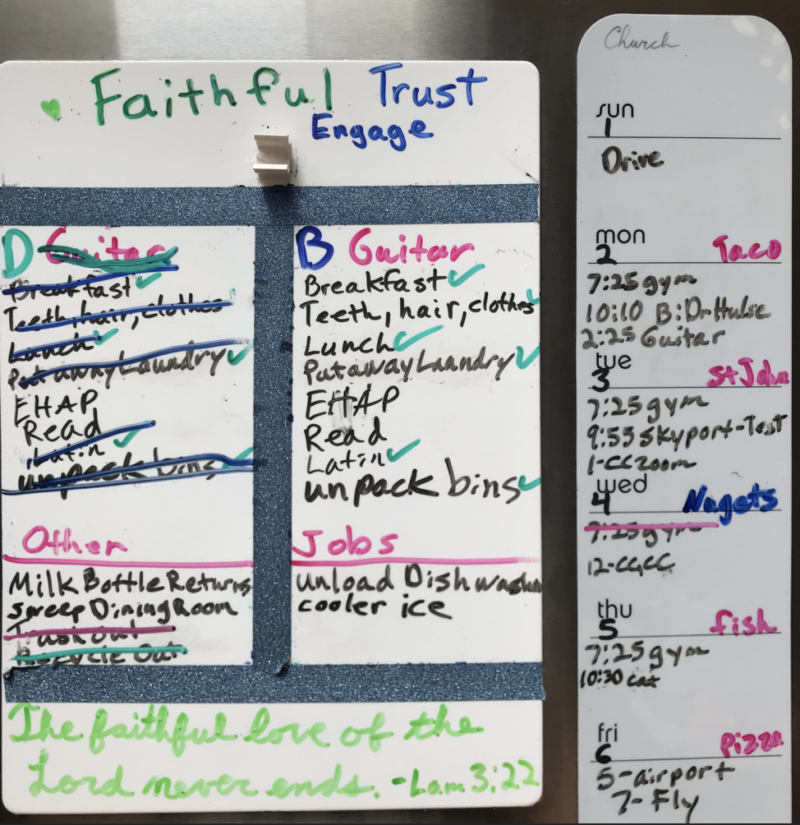 Faithful Trust
Engage
D Guitar
Breakfast
Teeth, hair, clothes
Lunch
Put away Laundry
EHAP
Read
Latin
unpack bins
B Guitar
Breakfast
Teeth, hair, clothes
Lunch
Put away Laundry
EHAP
Read
Latin
unpack bins
Other
Milk Bottle Returns
Sweep Dining Room
Trash out
Recycle Out
Jobs
unload Dishwasher
cooler ice
The faithful love of the
Lord never ends. -Lam 3:22
Church
sun
1
Drive
mon
2 Taco
7:25 gym
10:10 B: Dr
2:25 Guitar
tue
3 St John
7:25 gym
9:55 Skyport-Test
1-CC zoom
wed
4 Nugets
7:25 gym
12-CGCC
thu
5 fish
7:25 gym
10:30 cat
fri
6 Pizza
5-airport
7-Fly